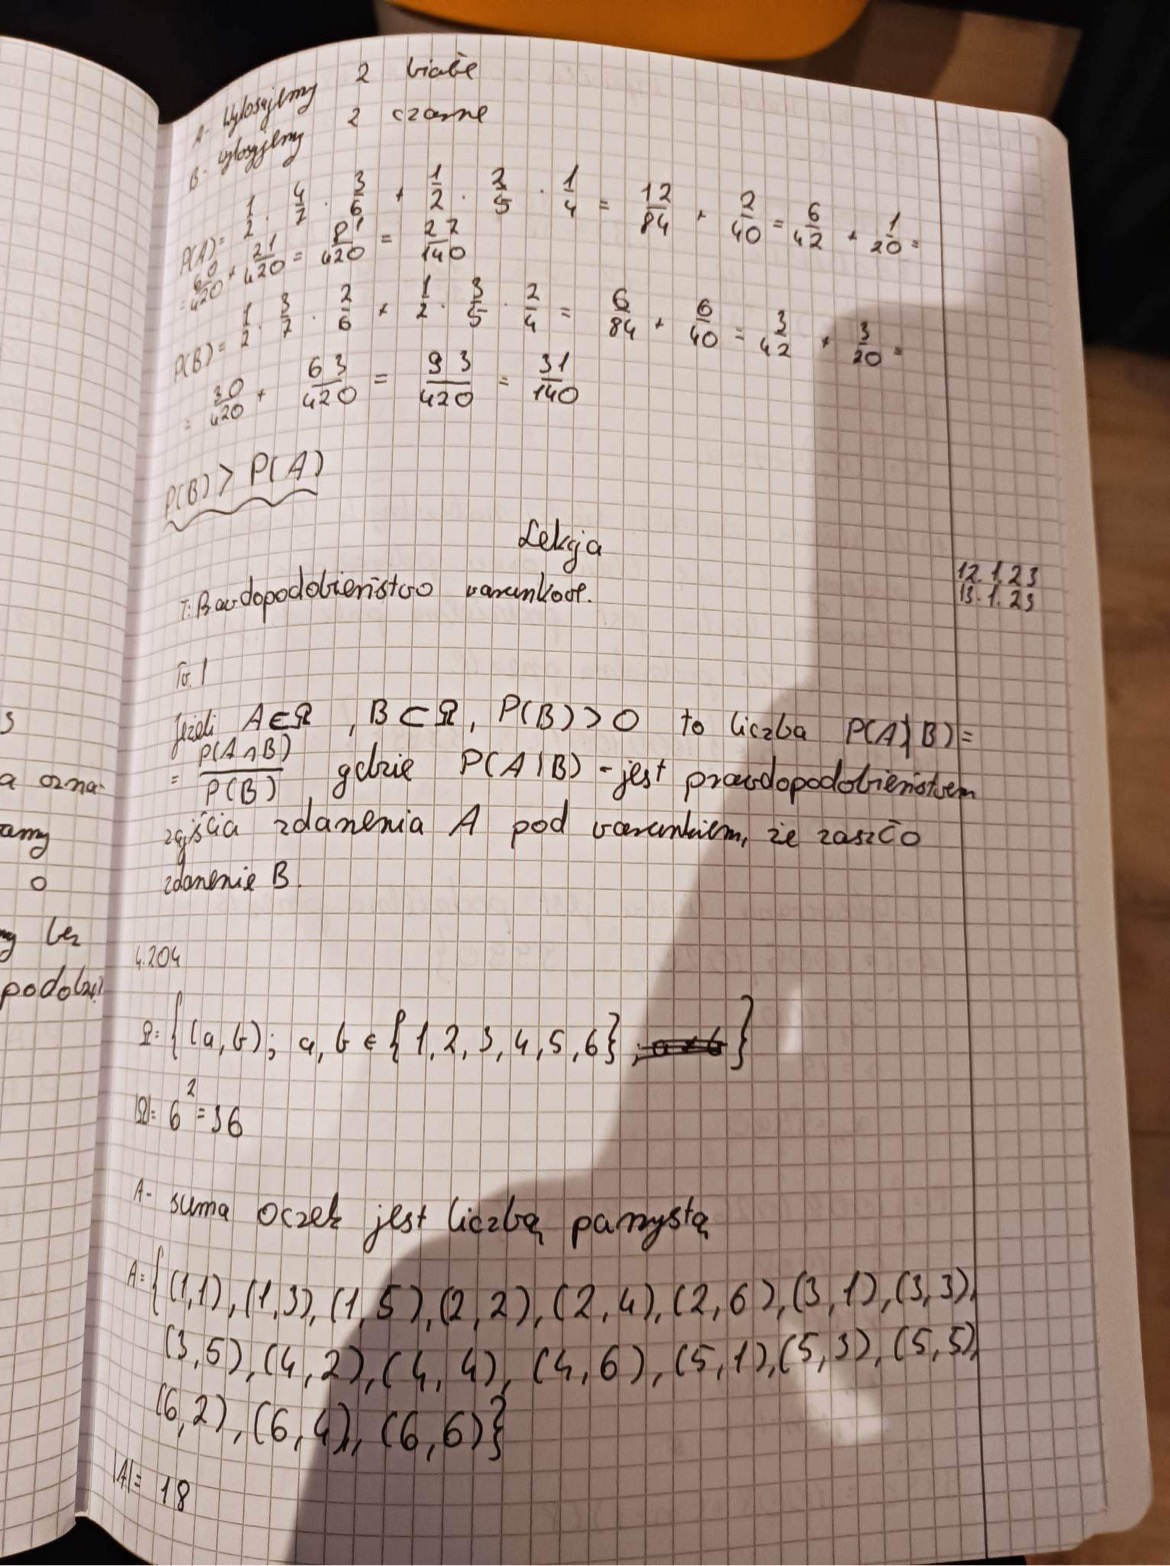 A- Wylosujemy 2 białe
B- Wylosujemy 2 czarne
P(A)= 1/2 · 4/7 · 3/6 + 1/2 · 2/5 · 1/4 = 12/84 + 2/40 = 6/42 + 1/20 =
= 60/420 + 21/420 = 81/420 = 27/140
P(B)= 1/2 · 3/7 · 2/6 + 1/2 · 3/5 · 2/4 = 6/84 + 6/40 = 3/42 + 3/20 =
= 30/420 + 63/420 = 93/420 = 31/140
P(B) > P(A)
Lekcja
12.1.23
T: Prawdopodobieństwo warunkowe.
13.1.23
Tw. 1
Jeżeli A⊂Ω, B⊂Ω, P(B)>0 to liczba P(A|B)=
= P(A∩B)/P(B) gdzie P(A|B) - jest prawdopodobieństwem
zajścia zdarzenia A pod warunkiem, że zaszło
zdarzenie B.
4.204
Ω={(a,b); a,b ∈ {1,2,3,4,5,6}}
|Ω|= 6²=36
A- suma oczek jest liczbą parzystą
A={(1,1),(1,3),(1,5),(2,2),(2,4),(2,6),(3,1),(3,3),
(3,5),(4,2),(4,4),(4,6),(5,1),(5,3),(5,5),
(6,2),(6,4),(6,6)}
|A|= 18
a ozna-
amy
o
bez